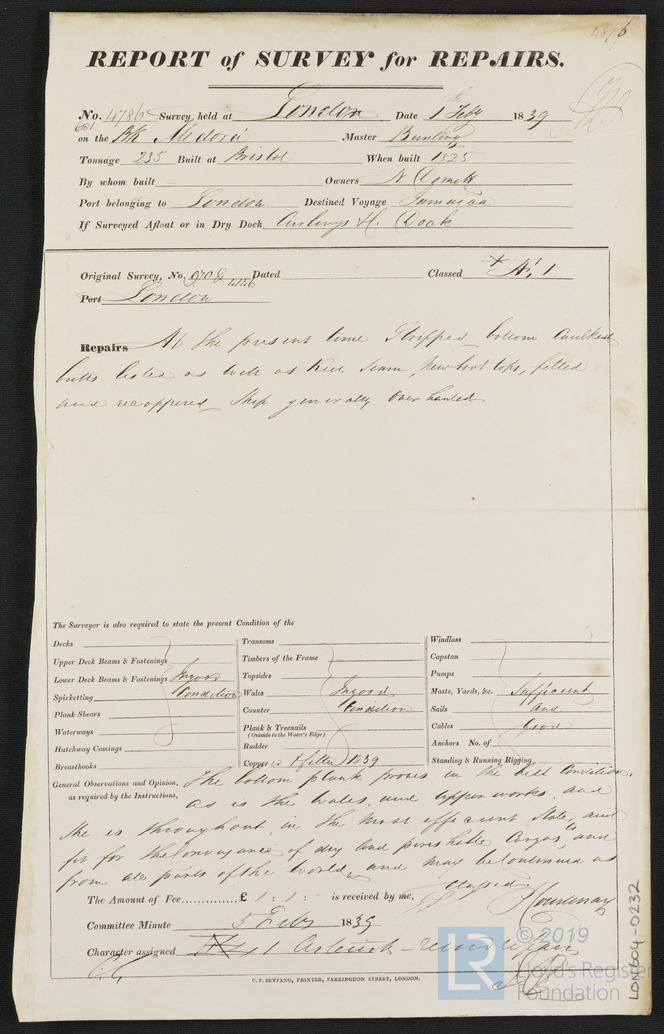 REPORT of SURVEY for REPAIRS.
No. 4786 Survey held at London Date 1st Feby 1839
681
on the Bk Medora Master Bunting
Tonnage 235 Built at Bristol When built 1825
By whom built Owners N
Port belonging to London Destined Voyage Jamaica
If Surveyed Afloat or in Dry Dock Curlings & Co. Dock
Original Survey, No. 4146 Dated Classed A 1
Port London
Repairs At the present time Stripped bottom Caulked
butts listed as well as Keel Seam, New boot tops, felted
and recoppered Ship generally Over hauled
The Surveyor is also required to state the present Condition of the
Decks
Upper Deck Beams & Fastenings
Lower Deck Beams & Fastenings
Spirketting
Plank Shears
Waterways
Hatchway Comings
Breasthooks
In good Condition
Transoms
Timbers of the Frame
Topsides
Wales
Counter
Plank & Treenails
(Outside to the Water's Edge)
Rudder
In good Condition
Copper & felted 1839
Windlass
Capstan
Pumps
Masts, Yards, &c.
Sails
Cables
Anchors No. of
Standing & Running Rigging
Sufficient and Good
General Observations and Opinion,
as required by the Instructions,
The bottom plank proves in the best Condition,
as is the Wales, and upper works. and
She is throughout, in the most efficient State, and
fit for the Conveyance of dry and perishable Cargos, to and
from all parts of the World, and may be Continued as
Classed.
The Amount of Fee £ 1 : 1 : - is received by me,
Courtenay
Committee Minute 5 Feby 1839
Character assigned
C. F. SEYFANG, PRINTER, FARRINGDON STREET, LONDON.
LON604-0232
LR
© 2019
Lloyd's Register
Foundation